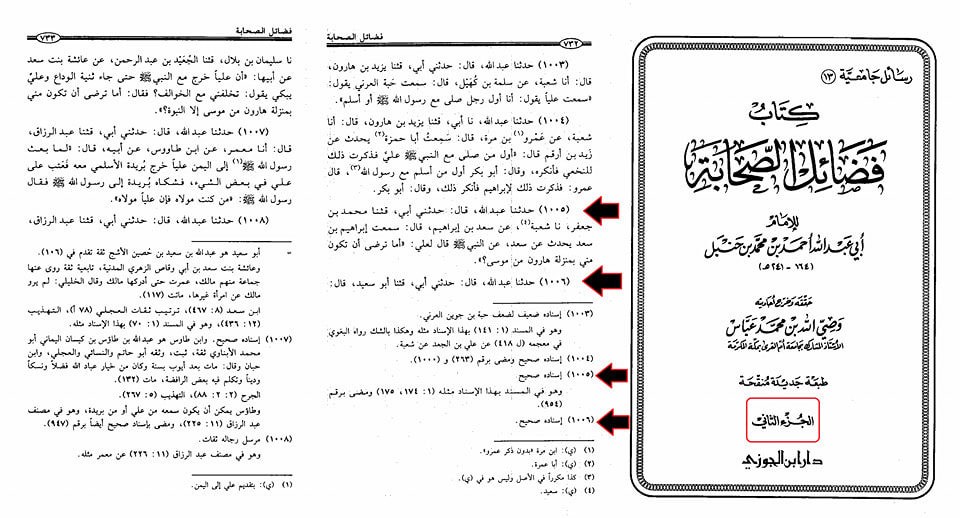 رسائل جامعية (١٣)
كتاب
فضائل الصحابة
للإمام
أبي عبد الله أحمد بن محمد بن حنبل
(١٦٤ - ٢٤١ هـ)
حققه وخرج أحاديثه
وصي الله بن محمد عباس
الأستاذ المشارك بجامعة أم القرى بمكة المكرمة
طبعة جديدة منقحة
الجزء الثاني
دار ابن الجوزي
فضائل الصحابة
٧٣٢
(١٠٠٣) حدثنا عبدالله، قال: حدثني أبي، قثنا يزيد بن هارون،
قال: أنا شعبة، عن سلمة بن كُهَيْل، قال: سمعت حبة العرني يقول:
«سمعت علياً يقول: أنا أول رجل صلى مع رسول الله ﷺ أو أسلم».
(١٠٠٤) حدثنا عبدالله، نا أبي، قثنا يزيد بن هارون، قال: أنا
شعبة، عن عَمْرو(١) بن مرة، قال: سَمِعتُ أبا حمزة(٢) يحدث عن
زيد بن أرقم قال: «أول من صلى مع النبي ﷺ عليّ فذكرت ذلك
للنخعي فأنكره، وقال: أبو بكر أول من أسلم مع رسول الله ﷺ(٣)، قال
عمرو: فذكرت ذلك لإبراهيم فأنكر ذلك، وقال: أبو بكر.
(١٠٠٥) حدثنا عبدالله، قال: حدثني أبي، قثنا محمد بن
جعفر، نا شعبة(٤)، عن سعد بن إبراهيم، قال: سمعت إبراهيم بن
سعد يحدث عن سعد، عن النبي ﷺ قال لعلي: «أما ترضى أن تكون
مني بمنزلة هارون من موسى؟».
(١٠٠٦) حدثنا عبدالله، قال: حدثني أبي، قثنا أبو سعيد، قال:
(١٠٠٣) إسناده ضعيف لضعف حبة بن جوين العرني.
وهو في المسند (١: ١٤١) بهذا الإسناد مثله وهكذا بالشك رواه البغوي
في معجمه (ل ٤١٨) عن علي بن الجعد عن شعبة.
(١٠٠٤) إسناده صحيح ومضى برقم (٢٦٣) و (١٠٠٠).
(١٠٠٥) إسناده صحيح
وهو في المسند بهذا الإسناد مثله (١: ١٧٤، ١٧٥) ومضى برقم
(٩٥٤).
(١٠٠٦) إسناده صحيح.
(١) (ي): ابن مرة «بدون ذكر عمرو».
(٢) (ي): أبا عمرة.
(٣) كذا مكرراً في الأصل وليس هو في (ي).
(٤) (ي): سعيد.
فضائل الصحابة
٧٣٣
نا سليمان بن بلال، قثنا الجُعَيْد بن عبد الرحمن، عن عائشة بنت سعد
عن أبيها: «أن علياً خرج مع النبي ﷺ حتى جاء ثنية الوداع وعليّ
يبكي يقول: تخلفني مع الخوالف؟ فقال: أما ترضى أن تكون مني
بمنزلة هارون من موسى إلا النبوة؟».
(١٠٠٧) حدثنا عبدالله، قال: حدثني أبي، قثنا عبد الرزاق،
قال: أنا معمر، عن ابن طاووس، عن أبيه، قال: «لما بعث
رسول الله ﷺ(١) إلى اليمن علياً خرج بُريدة الأسلمي معه فَعَتب على
علي في بعض الشيء، فشكاه بُريدة إلى رسول الله ﷺ فقال
رسول الله ﷺ: «من كنت مولاه فإن علياً مولاه».
(١٠٠٨) حدثنا عبدالله، قال: حدثني أبي، قثنا عبد الرزاق،
= أبو سعيد هو عبدالله بن سعيد بن حُصين الأشج ثقة تقدم في (١٠٦).
وعائشة بنت سعد بن أبي وقاص الزهري المدنية، تابعية ثقة روى عنها
جماعة منهم مالك، عمرت حتى أدركها مالك وقال الخليلي: لم يرو
مالك عن امرأة غيرها، ماتت (١١٧).
ابن سعد (٨: ٤٦٧)، ترتيب ثقات العجلي (٧٨ أ)، التهذيب
(١٢: ٤٣٦)، وهو في المسند (١: ٧٠) بهذا الإسناد مثله.
(١٠٠٧) إسناده صحيح. وابن طاوس هو عبدالله بن طاوُس بن كيسان اليماني أبو
محمد الأبناوي ثقة، ثبت، وثقه أبو حاتم والنسائي والعجلي، وابن
حبان وقال: مات بعد أيوب بسنة وكان من خيار عباد الله فضلاً ونسكاً
وديناً وتكلم فيه بعض الرافضة، مات (١٣٢).
الجرح (٢: ٢: ٨٨)، التهذيب (٥: ٢٦٧).
وطاؤس يمكن أن يكون سمعه من علي أو من بريدة، وهو في مصنف
عبد الرزاق (١١: ٢٢٥)، ومضى بإسناد صحيح أيضاً برقم (٩٤٧).
(١٠٠٨) مرسل رجاله ثقات.
وهو في مصنف عبد الرزاق (١١: ٢٢٦) عن معمر مثله.
(١) (ي): بتقديم علي إلى اليمن.